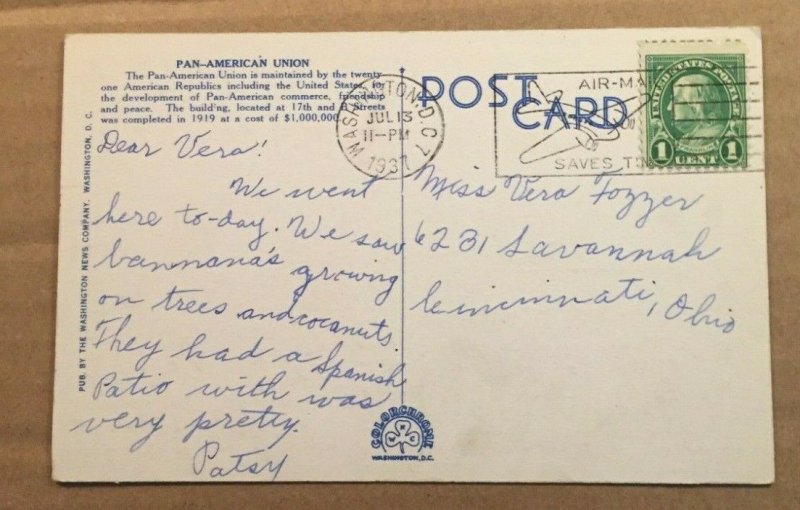 PAN-AMERICAN UNION
The Pan-American Union is maintained by the twenty-
one American Republics including the United States for
the development of Pan-American commerce, friendship
and peace. The building, located at 17th and B Streets
was completed in 1919 at a cost of $1,000,000.
POST
CARD
WASHINGTON, D.C. 7
JUL 13
11-PM
1937
AIR-MA
SAVES TIM
UNITED STATES POSTAGE
1 CENT 1
Dear Vera!
We went
here to-day. We saw
bannana's growing
on trees and cocanuts.
They had a Spanish
Patio with was
very pretty.
Patsy
Miss Vera Fozzer
6231 Savannah
Cincinnati, Ohio
PUB. BY THE WASHINGTON NEWS COMPANY, WASHINGTON, D. C.
COLORCHROME
WASHINGTON, D.C.